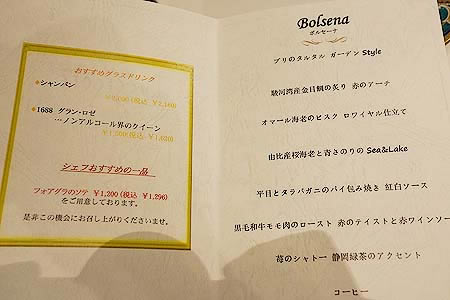 おすすめグラスドリンク
●シャンパン
¥2,000(税込 ¥2,160)
●1688 グラン・ロゼ
…ノンアルコール界のクイーン
¥1,500(税込 ¥1,620)
シェフおすすめの一品
フォアグラのソテ ¥1,200(税込 ¥1,296)
をご用意しております。
是非この機会にお召し上がりくださいませ。
Bolsena
ボルセーナ
ブリのタルタル ガーデン Style
駿河湾産金目鯛の炙り 赤のアーテ
オマール海老のビスク ロワイヤル仕立て
由比産桜海老と青さのりの Sea&Lake
平目とタラバガニのパイ包み焼き 紅白ソース
黒毛和牛モモ肉のロースト 赤のテイストと赤ワインソー
苺のシャトー 静岡緑茶のアクセント
コーヒー